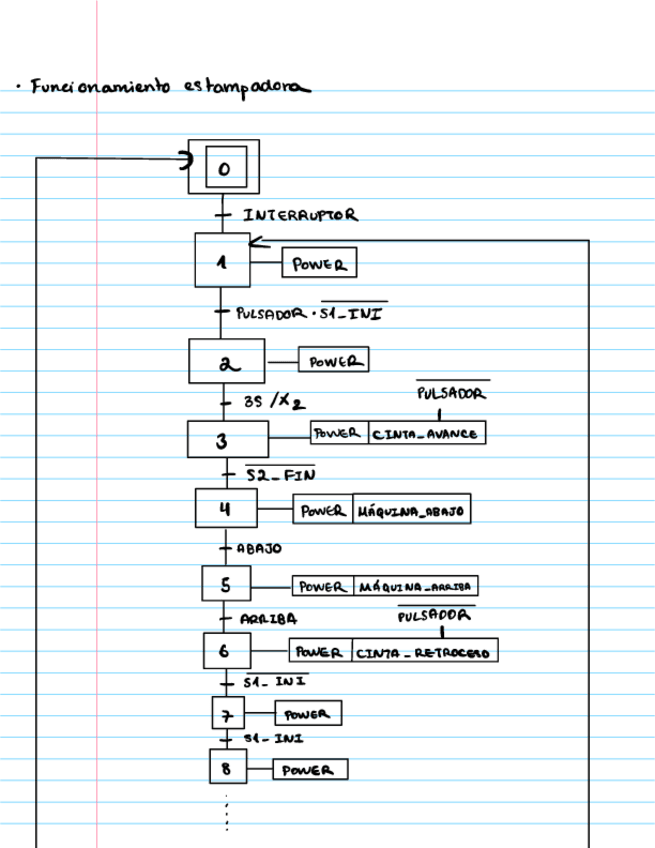 · Funcionamiento estampadora
0
INTERRUPTOR
1 POWER
PULSADOR · S̅1̅_̅I̅N̅I̅
2 POWER
3S /X2
P̅U̅L̅S̅A̅D̅O̅R̅
3 POWER CINTA_AVANCE
S̅2̅_̅F̅I̅N̅
4 POWER MÁQUINA_ABAJO
ABAJO
5 POWER MÁQUINA_ARRIBA
ARRIBA
P̅U̅L̅S̅A̅D̅O̅R̅
6 POWER CINTA_RETROCESO
S̅1̅_̅I̅N̅I̅
7 POWER
S1-INI
8 POWER